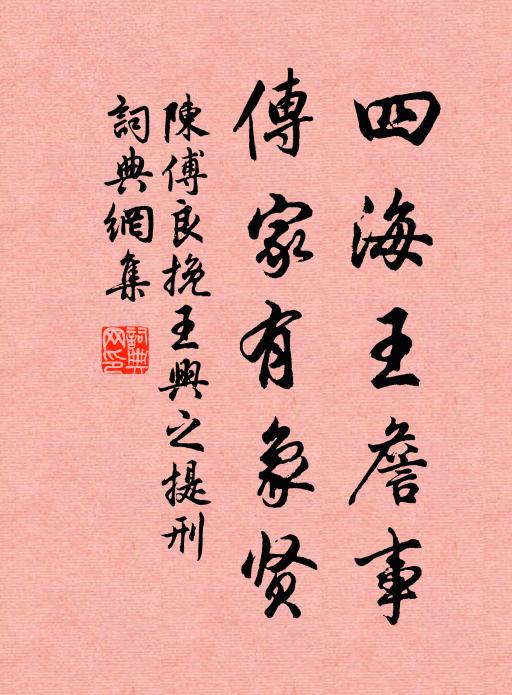 四海王詹事
傳家有象贤
陳傅良挽王興之提刑
詞典網集
詞典網印